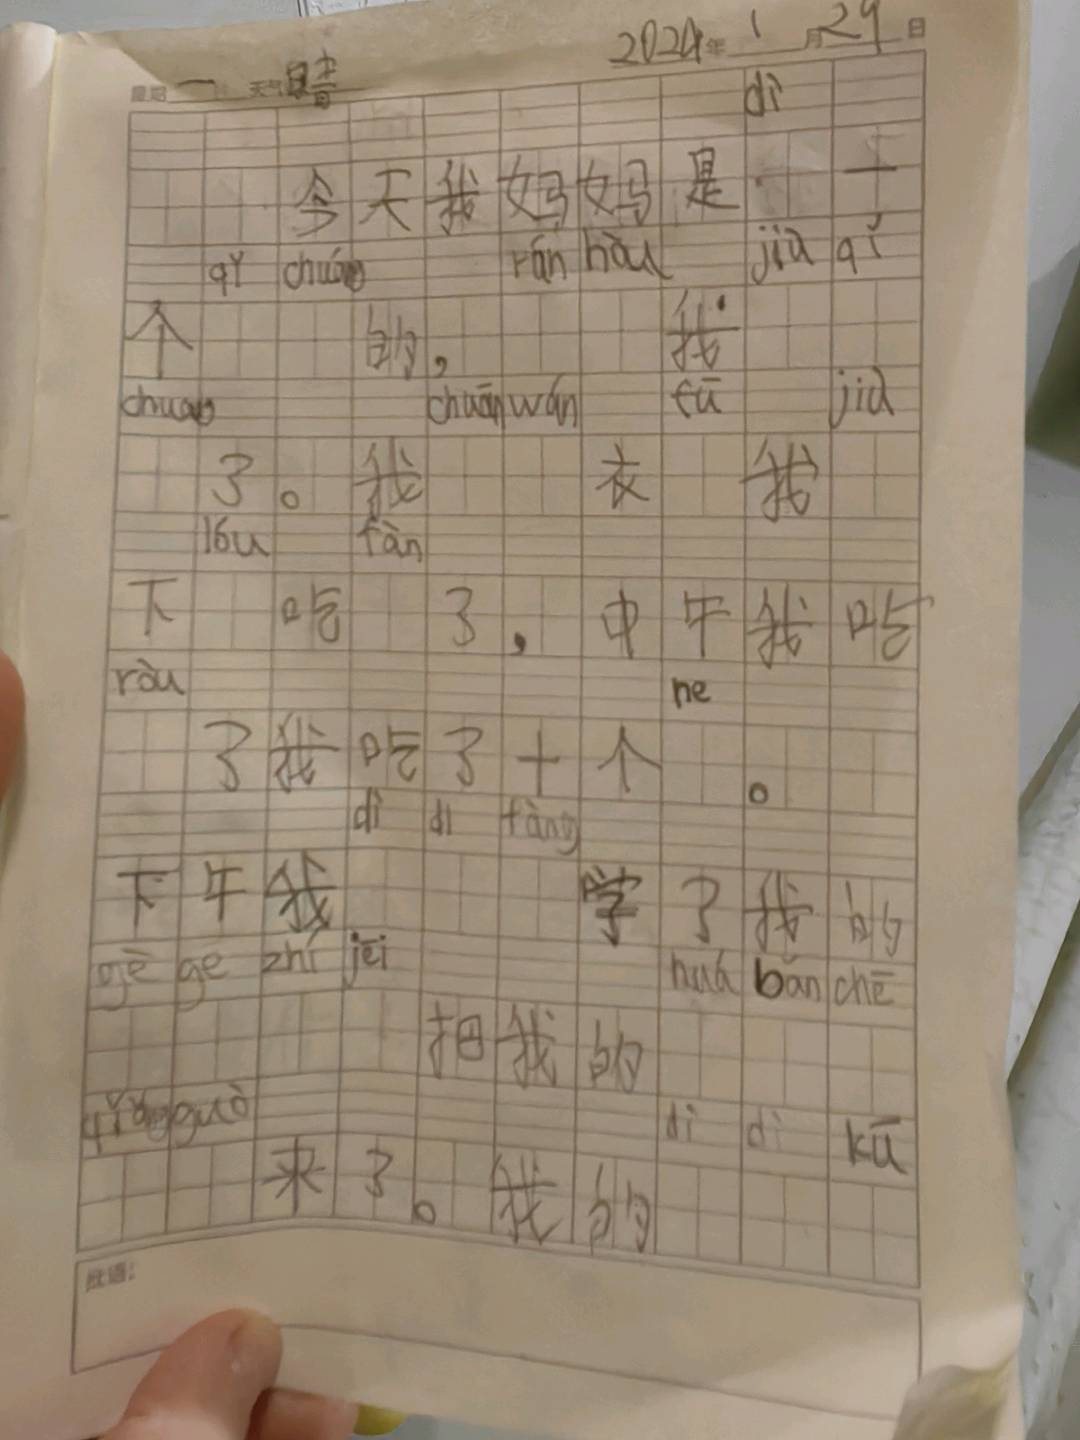 2024年 1 月 29 日
星期 一 天气 晴
dì
今天我妈妈是 一
qǐ chuáng rán hòu jiù qǐ
个 的， 我
chuang chuān wán fū jiù
了。我 衣 我
lóu fàn
下 吃 了，中午我吃
ròu ne
了我吃了十个 。
dì di fàng
下午我 学了我的
gē ge zhí jēi huá bǎn chē
把我的
qiǎng guò dì di kū
来了。我的
批语：